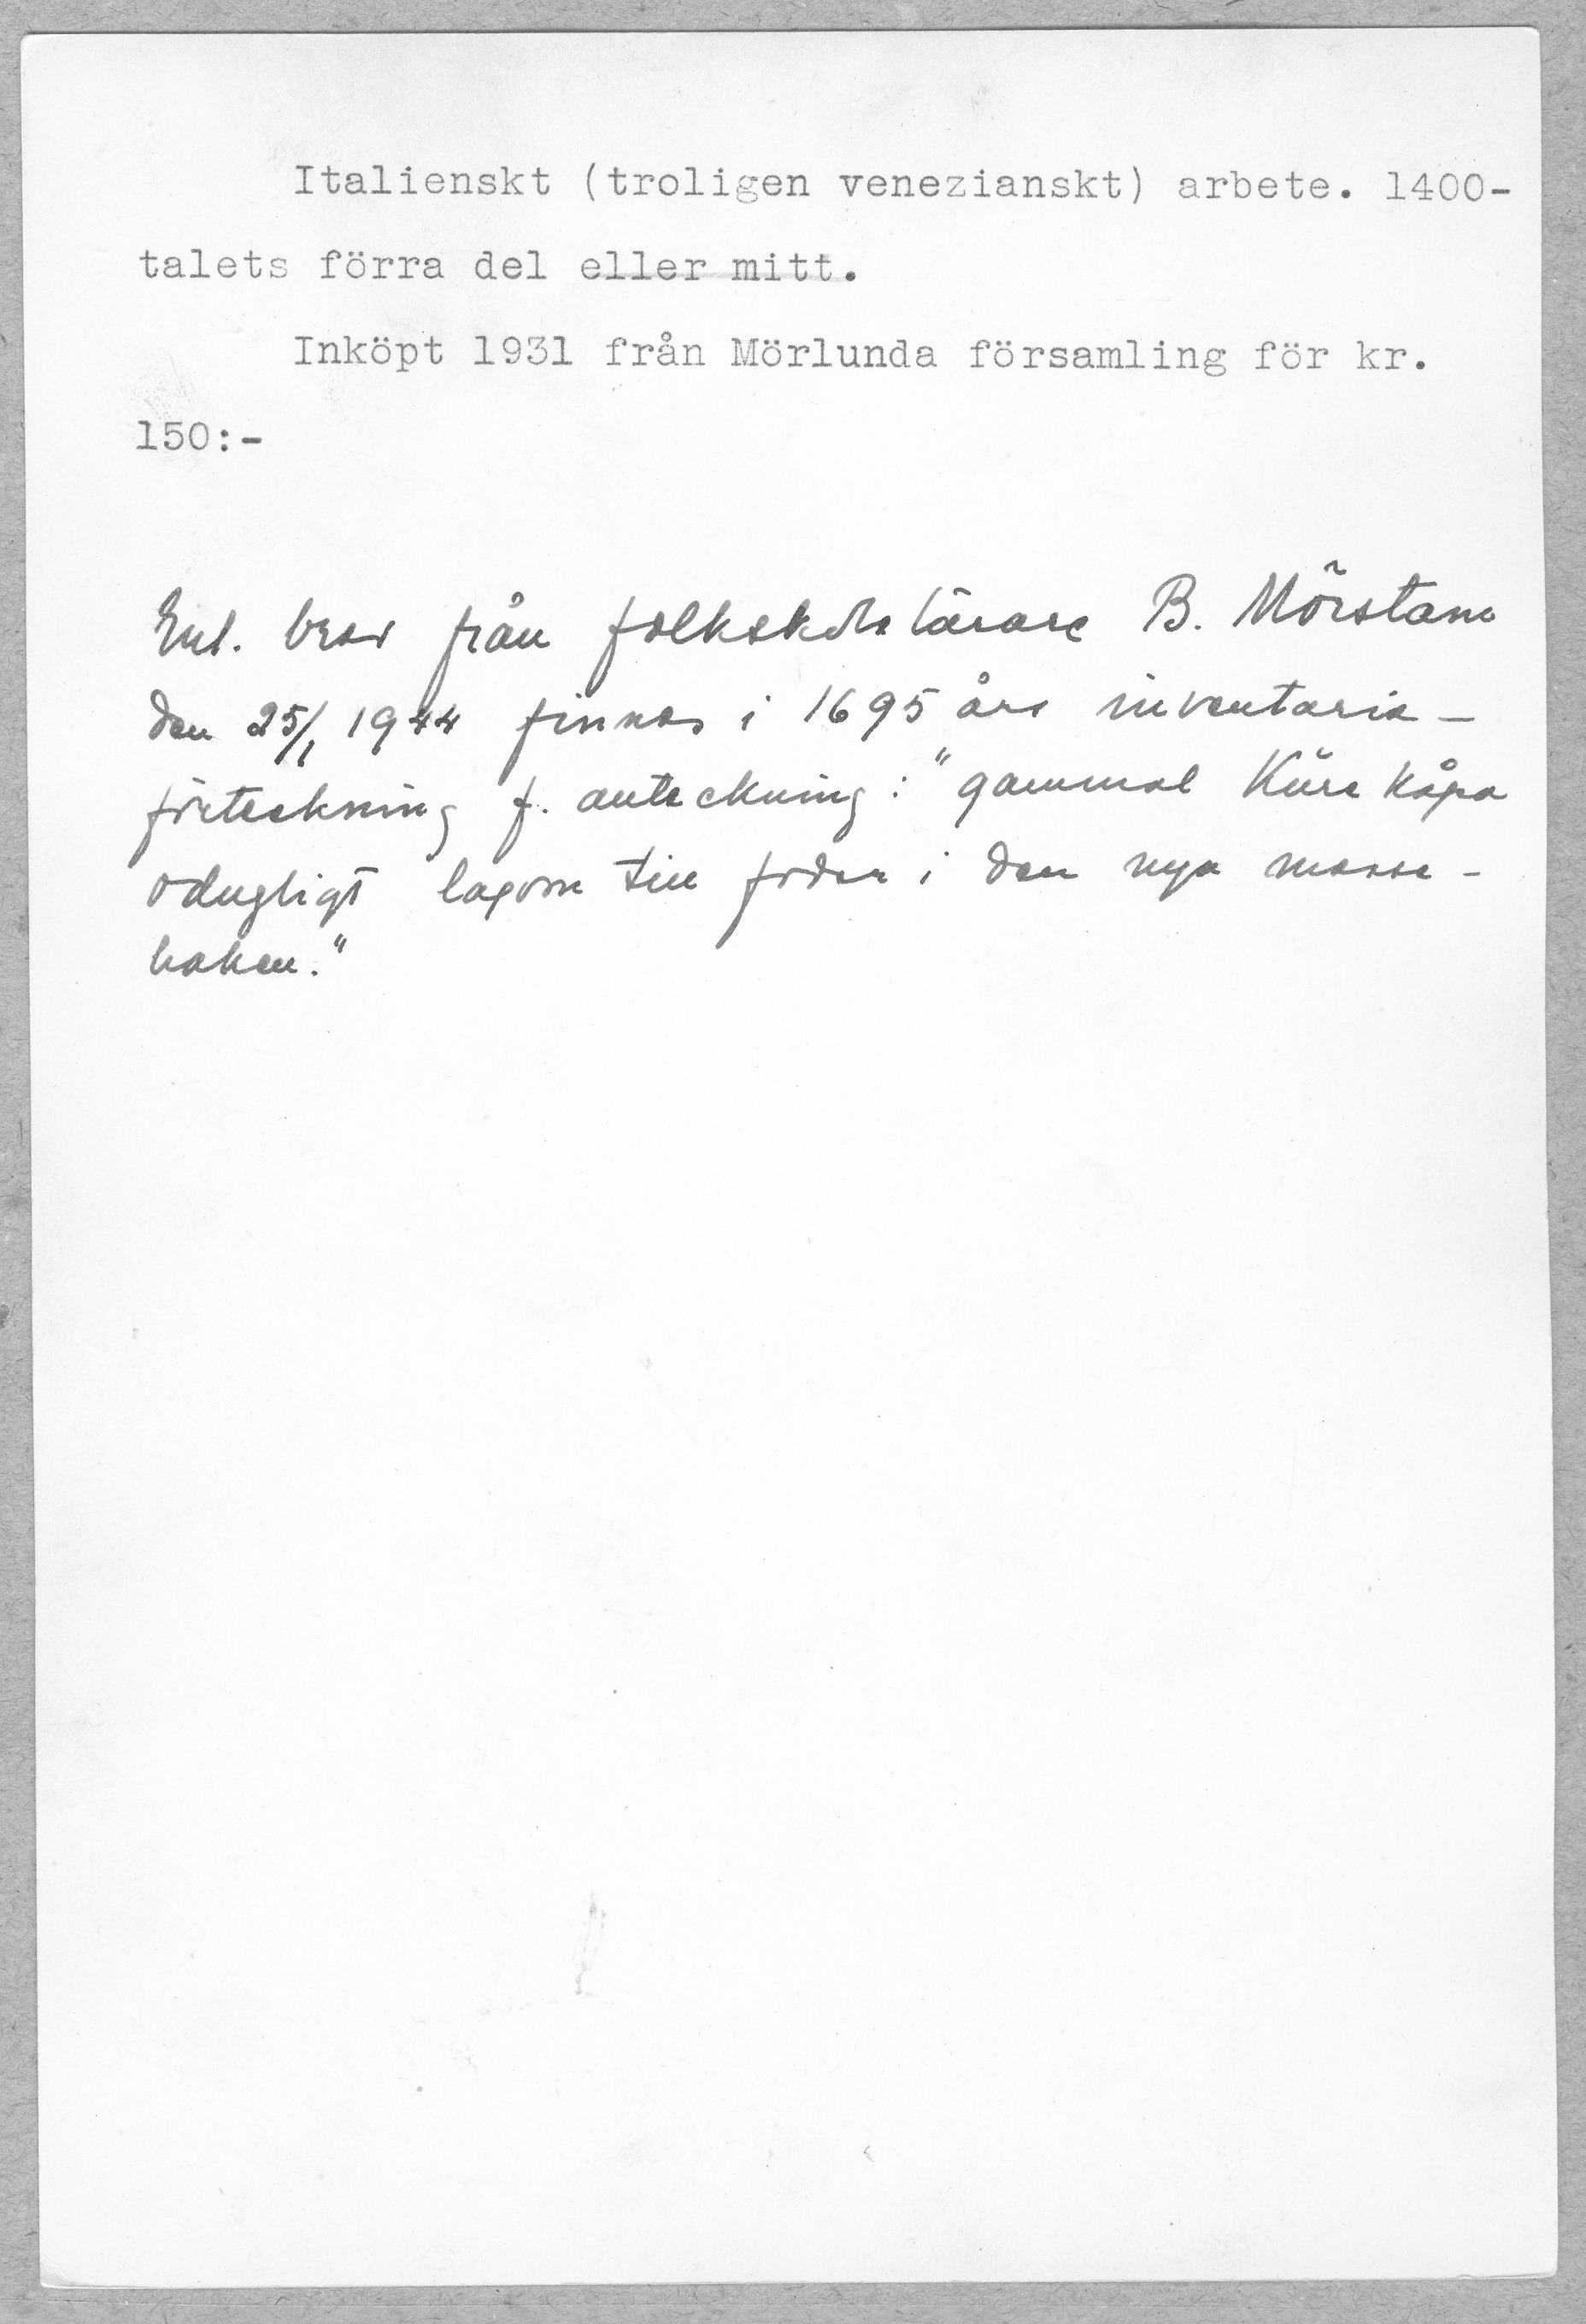 Italienskt (troligen venezianskt) arbete. 1400-
talets förra del eller mitt.
Inköpt 1931 från Mörlunda församling för kr.
150:-
Enl. brev från folkskolelärare B. Mörstam
den 25/1 1944 finnes i 1695 års inventarie-
förteckning f. anteckning: "gammal Köre Kåpa
odugligt lagom till foder i den nya messe-
haken."